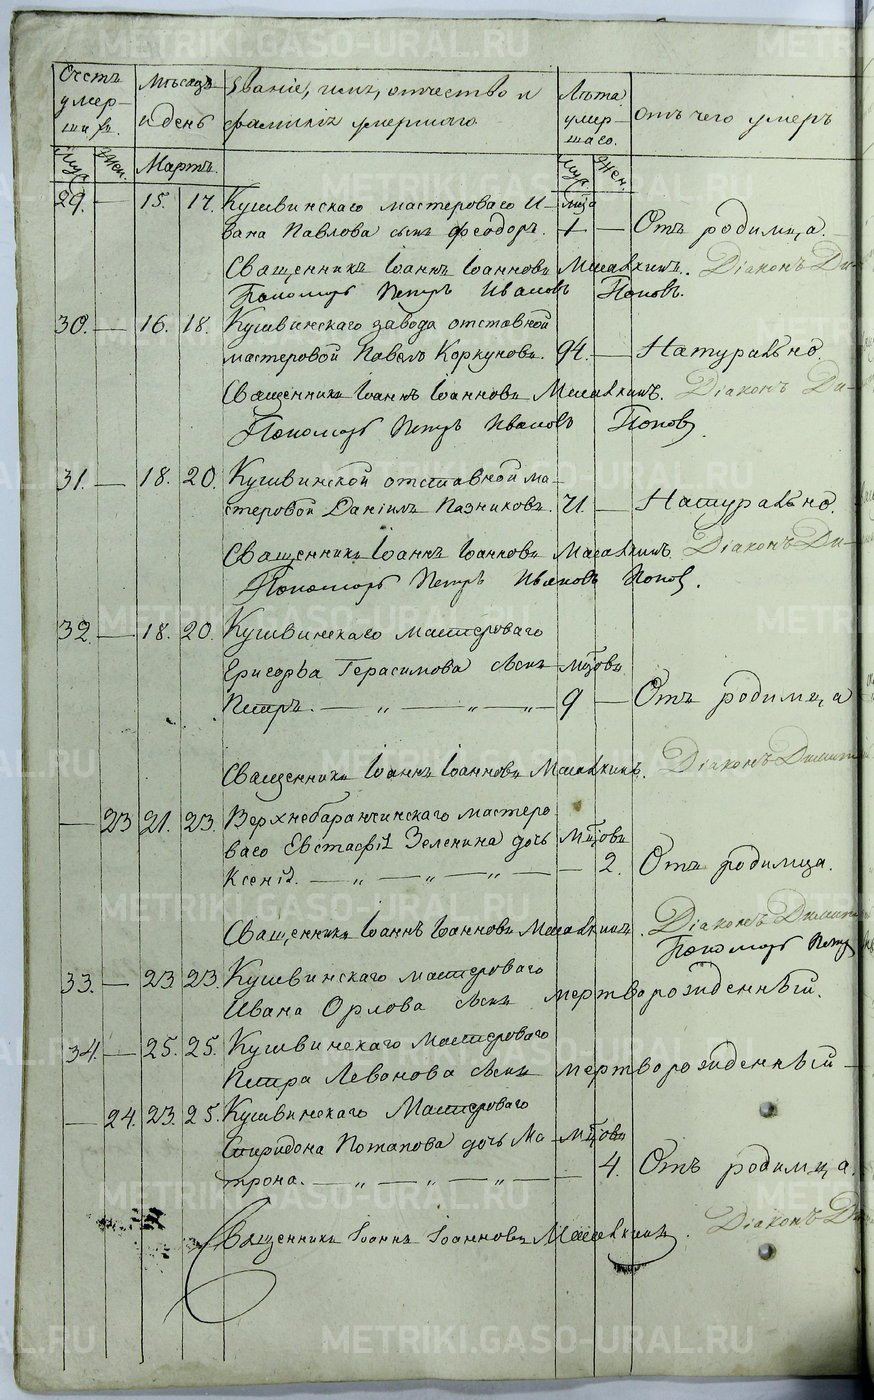 Счетъ умер- ши хъ. Мѣсяцъ и день Званіе, имя, отчество и фамилія умершаго Лѣта умер- шаго. отъ чего умеръ
Муж. Жен. Мартъ. Муж. Жен.
29. — 15. 17. Кушвинскаго мастероваго И-
вана Павлова сынъ Ѳеодоръ. 1 — Отъ родимца.
Священникъ Іоаннъ Іоанновъ Діаконъ Ди-
Пономарь Петръ Ивановъ Поповъ.
30. — 16. 18. Кушвинскаго завода отставной
мастеровой Павелъ Коркуновъ. 94. — Натурально.
Священникъ Іоаннъ Іоанновъ Діаконъ Ди-
Пономарь Петръ Ивановъ Поповъ
31. — 18. 20. Кушвинской отставной ма-
стеровой Даніилъ Пазниковъ. 71. — Натурально.
Священникъ Іоаннъ Іоанновъ Діаконъ Ди-
Пономарь Петръ Ивановъ Поповъ.
32. — 18. 20. Кушвинскаго мастероваго
Григорья Герасимова сынъ мцовъ
Петръ. — „ — „ — „ — 9 — Отъ родимца
Священникъ Іоаннъ Іоанновъ Діаконъ Димит
— 23 21. 23. Верхнебаранчинскаго мастеро-
ваго Евстафія Зеленина дочь мцовъ
Ксенія. — „ — „ — „ — 2. Отъ родимца.
Священникъ Іоаннъ Іоанновъ Діаконъ Димит
Пономарь Петръ
33. — 23 23. Кушвинскаго мастероваго
Ивана Орлова сынъ мертворожденный.
34. — 25. 25. Кушвинскаго мастероваго
Петра Леванова сынъ мертворожденный —
— 24. 23. 25. Кушвинскаго Мастероваго
Спиридона Потапова дочь Ма- мцовъ
трона. — „ — „ — „ — 4. Отъ родимца.
Священникъ Іоаннъ Іоанновъ Діаконъ Ди
METRIKI.GASO-URAL.RU